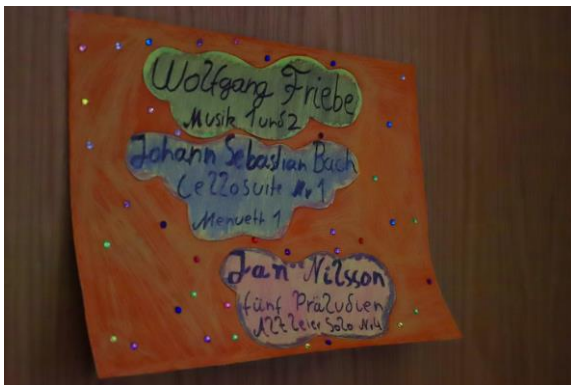 Wolfgang Friebe
Musik 1 und 2
Johann Sebastian Bach
Cellosuite Nr 1
Menuett 1
Jan Nilsson
fünf Präludien
Altleier Solo Nr 4